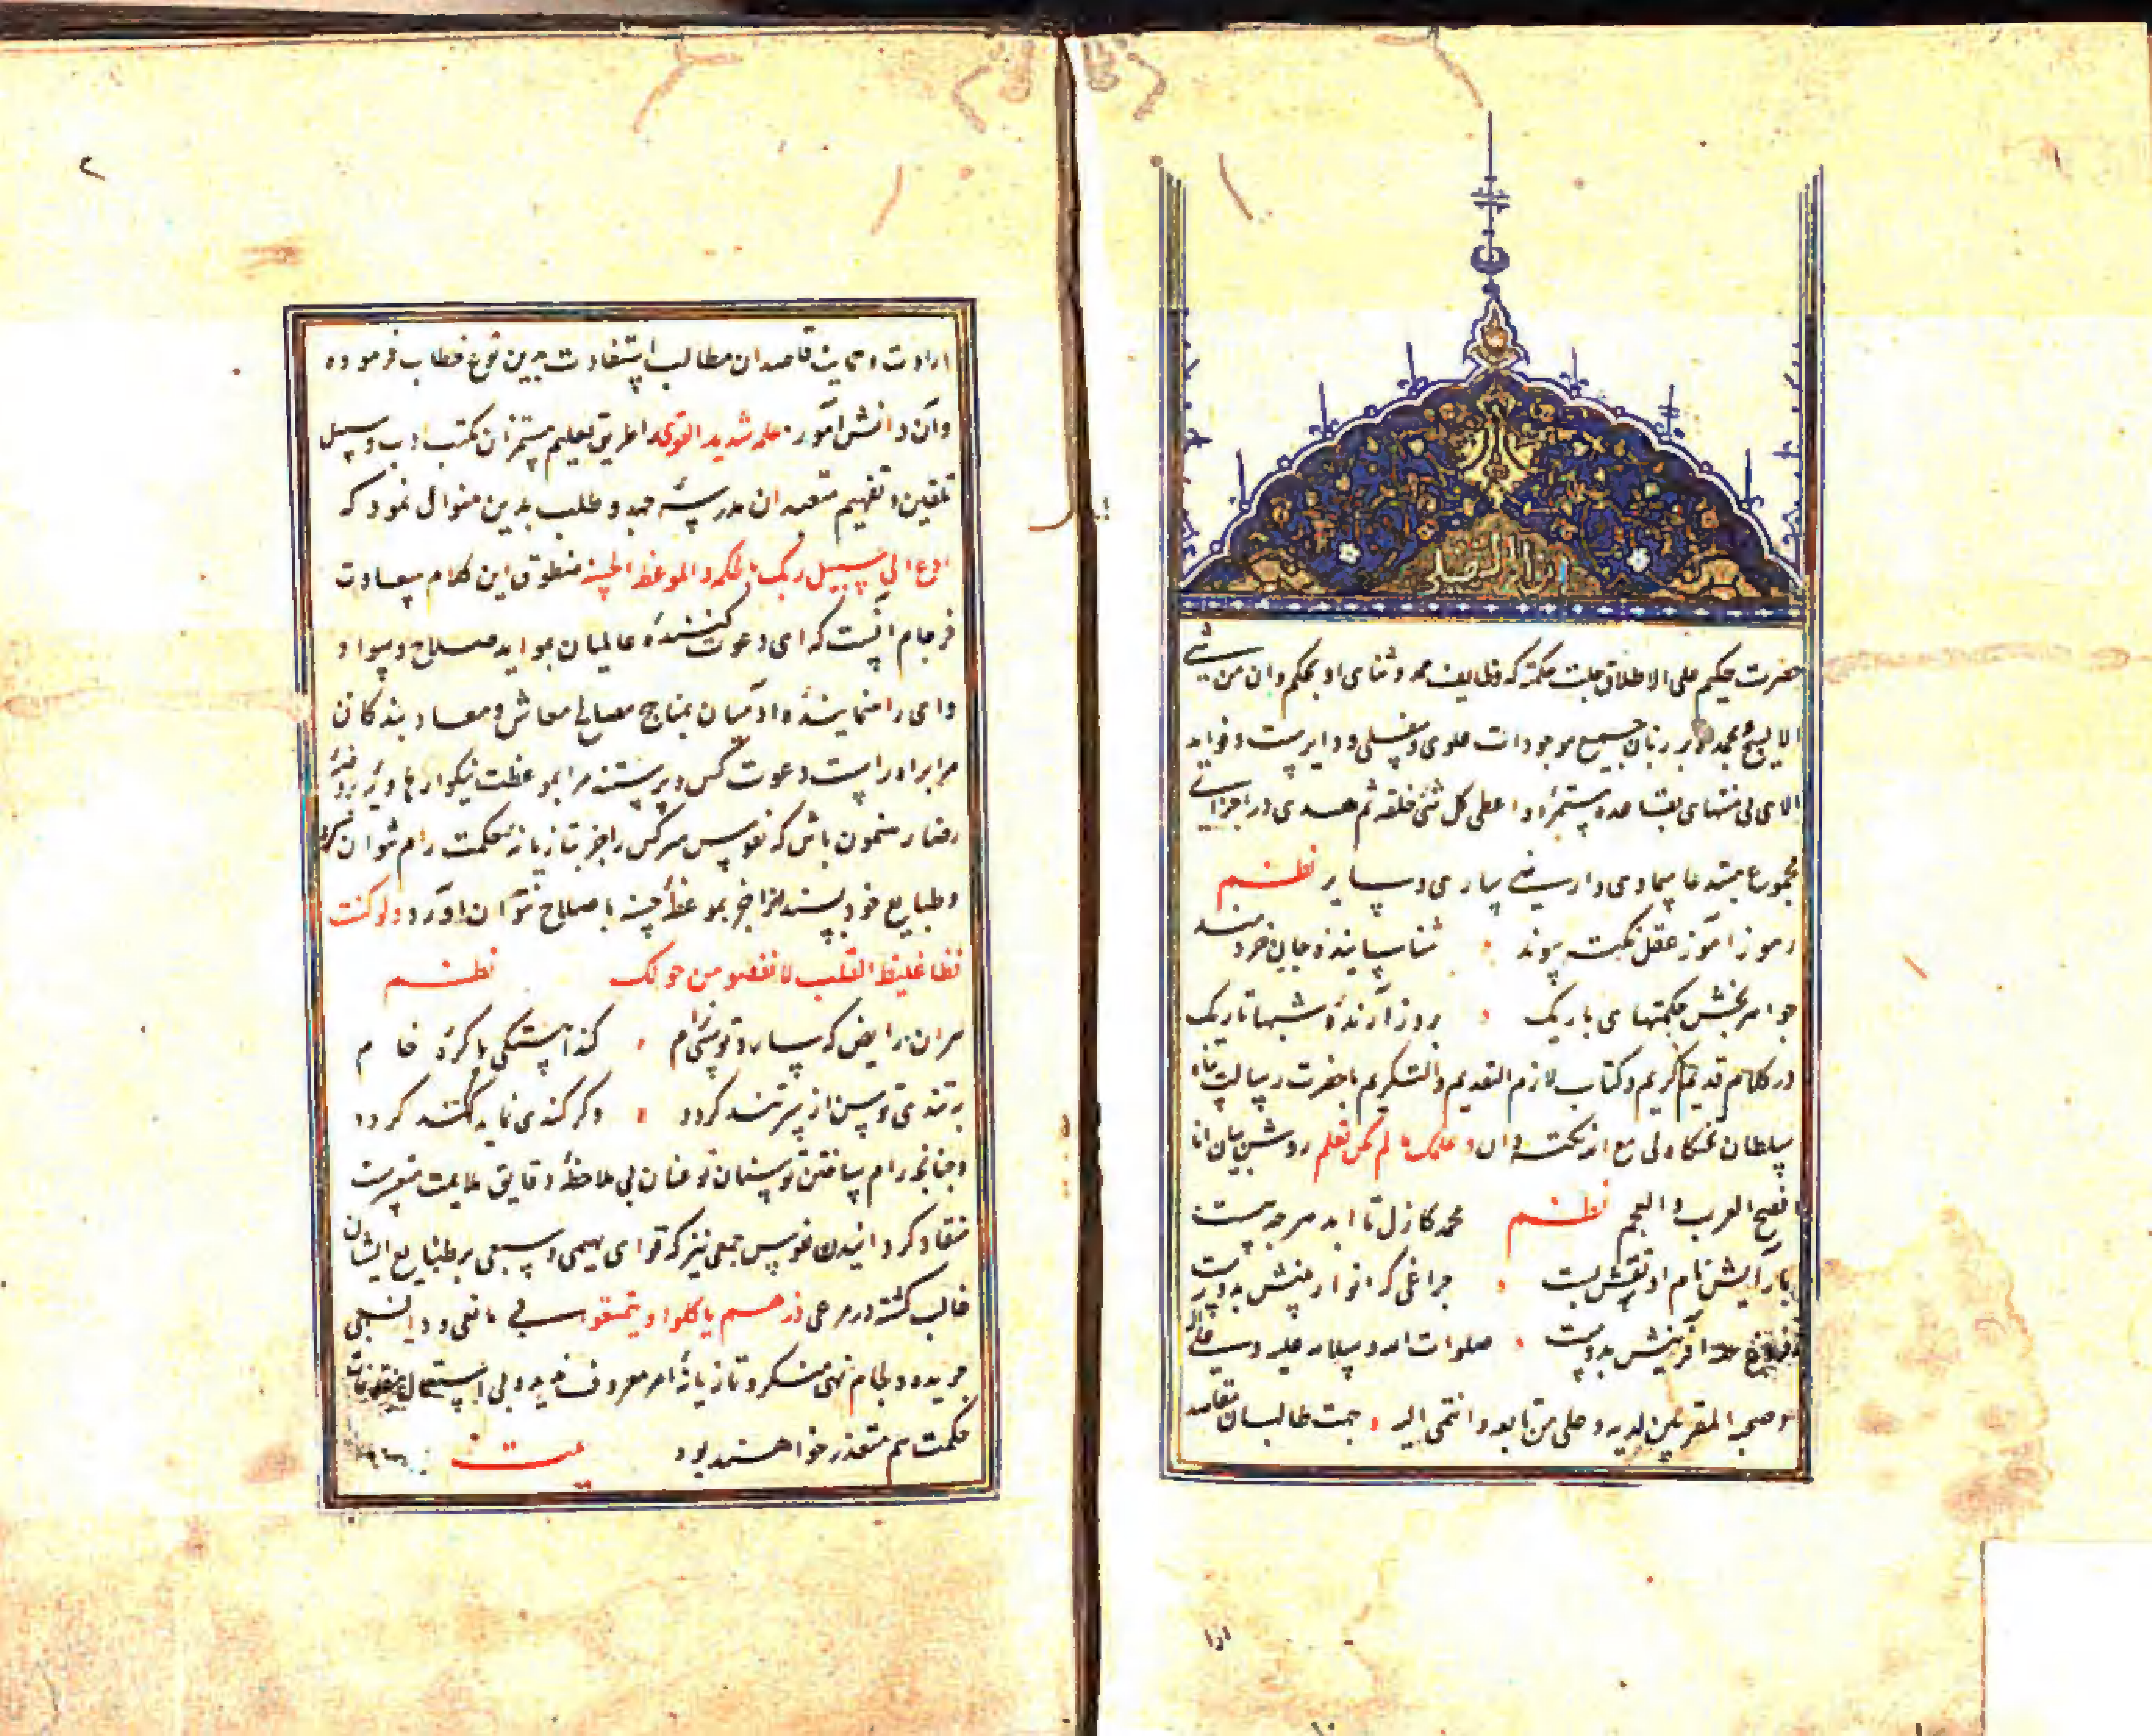 انوار السهیلی
حضرت حکیم علی الاطلاق جلت حکمته که وظایف حمد و ثنای او بحکم وان من شیء
الا یسبح بحمده بر زبان جمیع موجودات علوی و سفلی دایرست و فواید
الای بی منتهای بقاعده مستمره اعطی کل شیء خلقه ثم هدی در اجزای
مجموع مبتدعات سماوی و ارضی ساری و سایر نظم
رموز آموز عقل نکته پیوند شناسا ینده جان خردمند
جواهر بخش حکمتهای باریک بروز آرنده شبها تاریک
در کلام قدیم کریم و کتاب لازم التقدیم و التکریم با حضرت رسالت پناه
سلطان تختگاه لی مع الله نکته دان و علمک ما لم تکن تعلم روشن بیان انا
افصح العرب و العجم نظم محمد کازل تا ابد هر چه هست
بآرایش نام او نقش بست چراغی که انوار بینش بدوست
فروغ همه آفرینش بدوست صلوات الله و سلامه علیه و علی آله
و صحبه المقربین لدیه و علی من تابعه و انتمی الیه جهت طالبان مقاصد
۲
ارادت و حمایت قاصدان مطالب استفادت بدین نوع خطاب فرموده
وآن دانش آموز علمه شدید القوی را طریق تعلیم مستمزان مکتب ادب و سبیل
تلقین و تفهیم متعهدان مدرسهٔ جهد و طلب بدین منوال نمود که
ادع الی سبیل ربک بالحکمه و الموعظه الحسنه منطوق این کلام سعادت
فرجام آنست که ای دعوت کننده عالمیان بمواید صلاح و سواد
و ای راهنماینده آدمیان بمناهج مصالح معاش و معاد بندگان
مرا براه راست دعوت کن و پرستندگان مرا بموعظت نیکو از هاویه به روضهٔ
رضا رهنمون باش که نفوس سرکش را جز بتازیانه حکمت رام نتوان کرد
و طبایع خود پسند را جز بموعظهٔ حسنه باصلاح نتوان آورد ولو کنت
فظا غلیظ القلب لانفضوا من حولک نظم
مران رایض که سازد توسنی رام کند آهستگی با کرهٔ خام
به تندی توسن از سر تند گردد وگر کندی نماید کند گردد
و چنانچه رام ساختن توسنان توسنان بی ملاحظهٔ دقایق ملایمت متعسرست
منقاد گردانیدن نفوس جمعی نیز که قوای بهیمی و سبعی بر طبایع ایشان
غالب گشته در مرعی ذرهم یأکلوا و یتمتعوا بی مانعی و دافعی
چریده و لجام نهی منکر و تازیانهٔ امر معروف ندیده بی استعمال
حکمت هم متعذر خواهد بود بیت